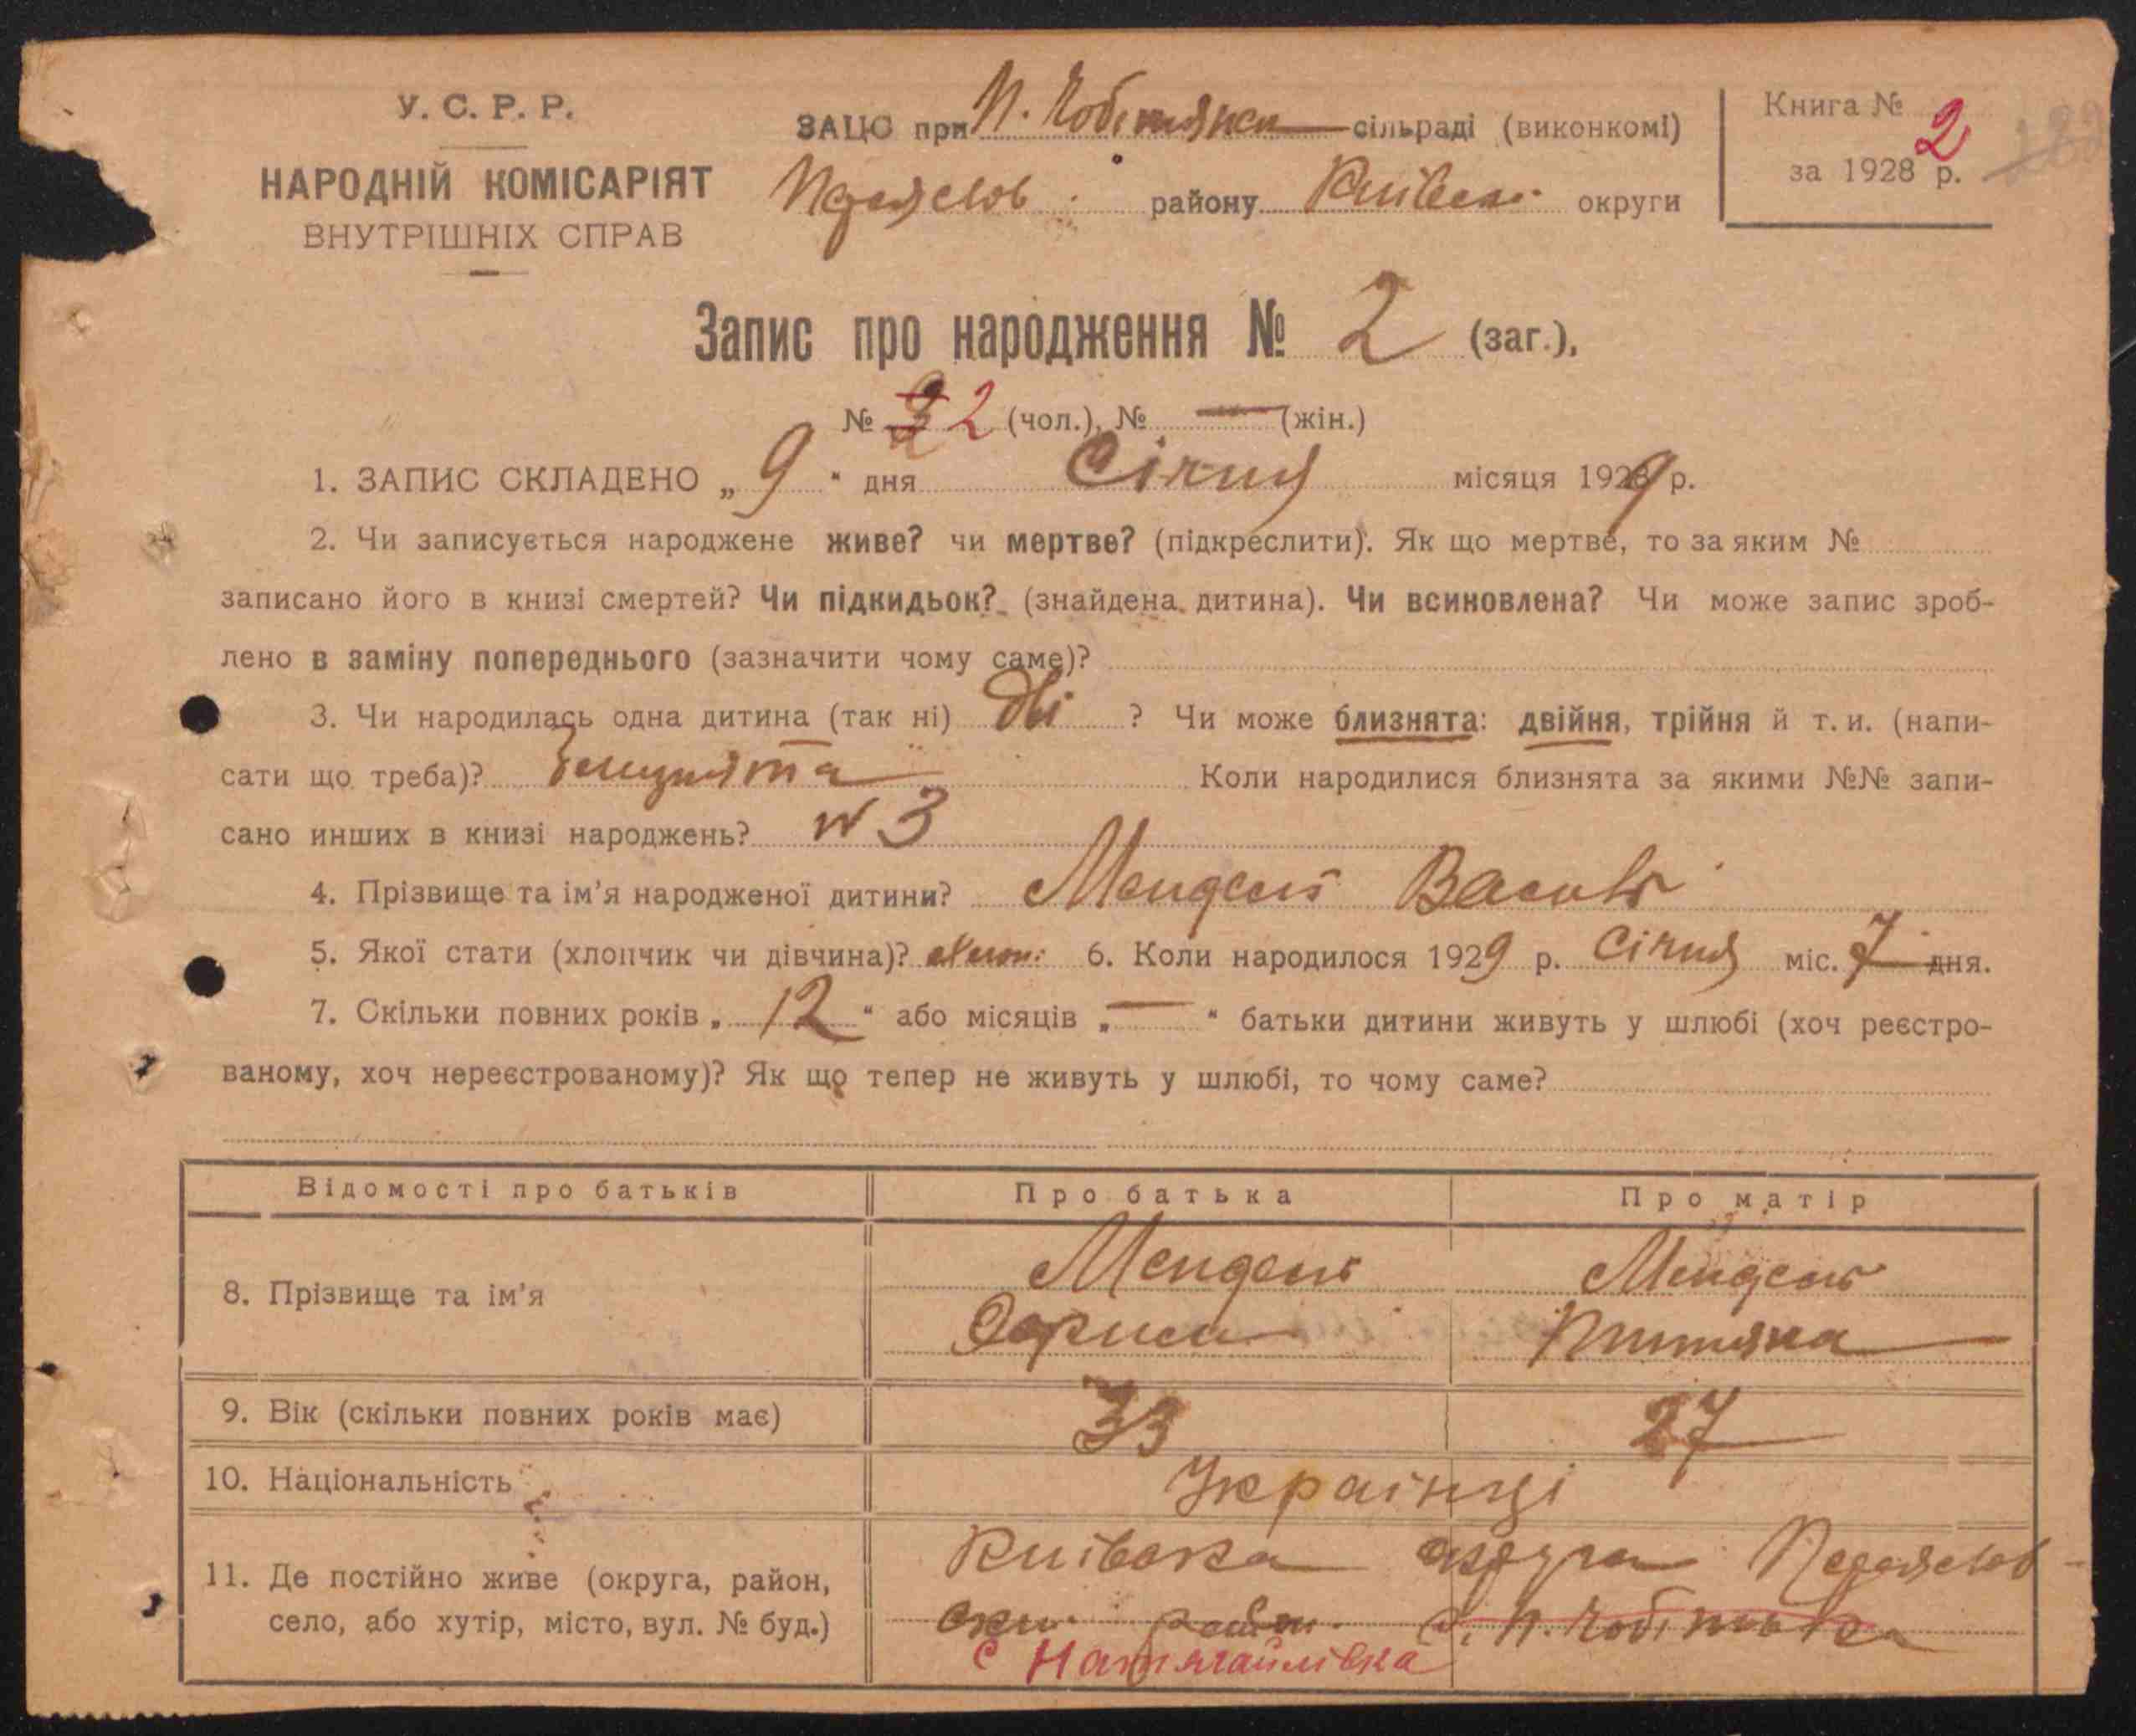 У. С. Р. Р.
НАРОДНІЙ КОМІСАРІЯТ
ВНУТРІШНІХ СПРАВ
ЗАЦС при сільраді (виконкомі)
району Київськ. округи
Книга № 2
за 1928 р.
Запис про народження № 2 (заг.),
№ 2 (чол.), № — (жін.)
1. ЗАПИС СКЛАДЕНО „ 9 “ дня Січня місяця 1929 р.
2. Чи записується народжене живе? чи мертве? (підкреслити). Як що мертве, то за яким №
записано його в книзі смертей? Чи підкидьок? (знайдена дитина). Чи всиновлена? Чи може запис зроб-
лено в заміну попереднього (зазначити чому саме)?
3. Чи народилась одна дитина (так ні) дві ? Чи може близнята: двійня, трійня й т. и. (напи-
сати що треба)? Коли народилися близнята за якими №№ запи-
сано инших в книзі народжень? № 3
4. Прізвище та ім’я народженої дитини? Мендель Василь
5. Якої стати (хлопчик чи дівчина)? хлоп: 6. Коли народилося 1929 р. Січня міс. 7 дня.
7. Скільки повних років „ 12 “ або місяців „ — “ батьки дитини живуть у шлюбі (хоч реєстро-
ваному, хоч нереєстрованому)? Як що тепер не живуть у шлюбі, то чому саме?
Відомості про батьків Про батька Про матір
8. Прізвище та ім’я Мендель Мендель
9. Вік (скільки повних років має) 33 27
10. Національність Українці
11. Де постійно живе (округа, район,
село, або хутір, місто, вул. № буд.)
Київська округа
район.